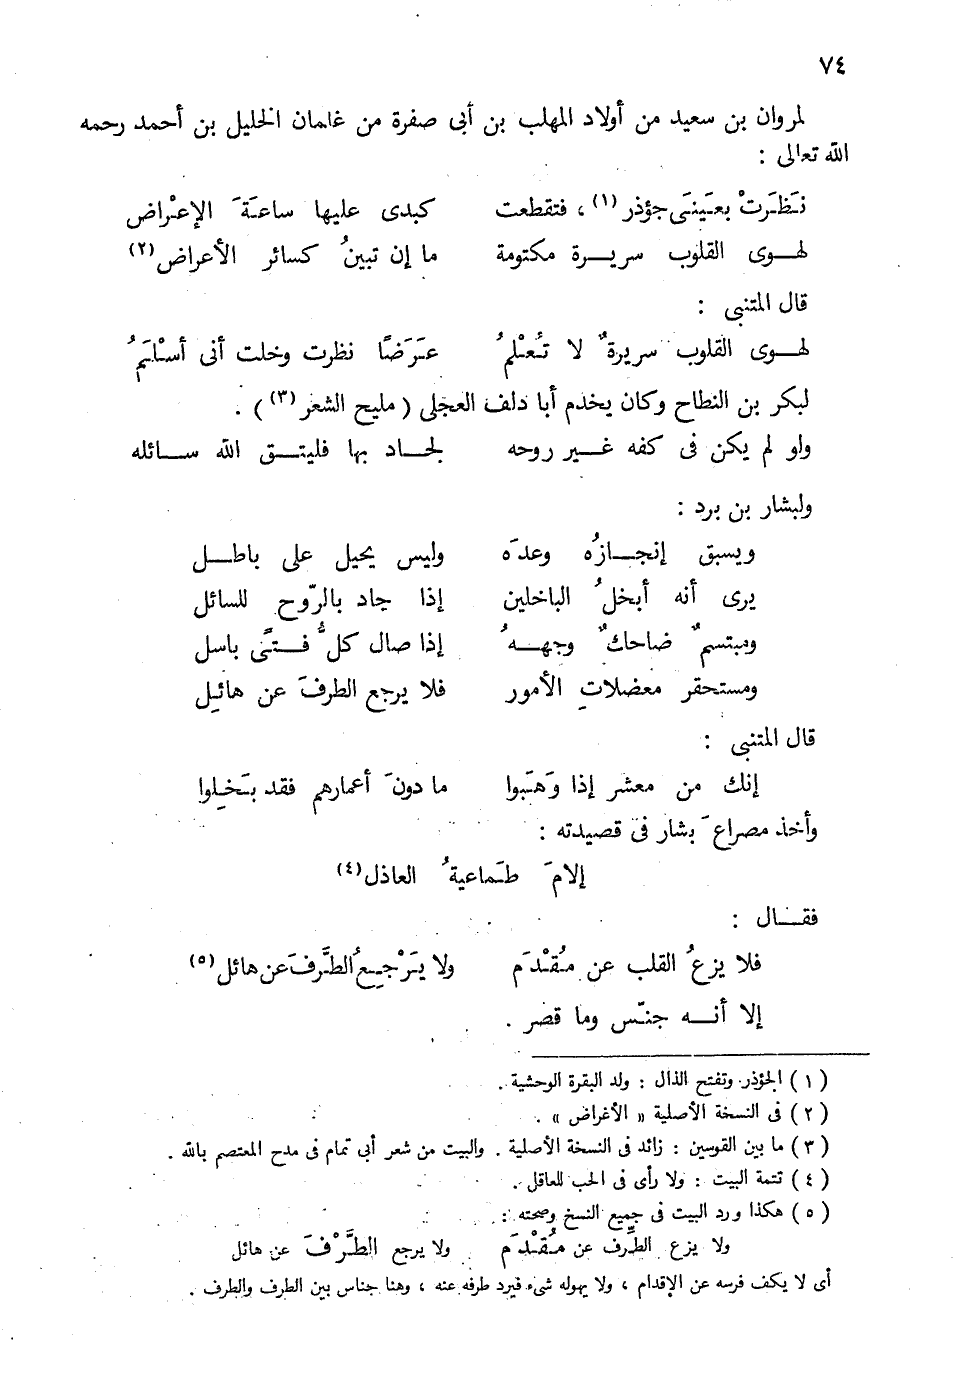 ٧٤
لمروان بن سعيد من أولاد المهلب بن أبى صفرة من غلمان الخليل بن أحمد رحمه
الله تعالى :
نَظَرَتْ بعَينَى جؤذر (١) ، فتقطعت كبدى عليها ساعةَ الإعْراض
لهـوى القلوب سريـرة مكتومة ما إن تبينُ كسائر الأعراض (٢)
قال المتنبى :
لهـوى القلوب سريرةٌ لا تُعْلمُ عَرَضًا نظرت وخلت أنى أسْلَمُ
لبكر بن النطاح وكان يخدم أبا دلف العجلى ( مليح الشعر (٣) ) .
ولو لم يكن فى كفه غـير روحه لجـاد بها فليتـق الله سـائله
ولبشار بن برد :
ويسبق إنجـازُه وعدَه وليس يحيل على باطـل
يرى أنه أبخلُ الباخلين إذا جاد بالرّوح للسائل
ومبتسمٌ ضاحكٌ وجهـهُ إذا صال كلُّ فـتًى باسل
ومستحقر معضلاتِ الأمور فلا يرجع الطرفَ عن هائل
قال المتنبى :
إنك من معشر إذا وَهَبوا ما دونَ أعمارهم فقد بَخلِوا
وأخذ مصراعَ بشار فى قصيدته :
إلامَ طَماعيةُ العاذل (٤)
فقـال :
فلا يزعُ القلب عن مُقْدَم ولا يَرْجِعُ الطَّرفَ عن هائل (٥)
إلا أنـه جنّس وما قصر .
( ١ ) الجؤذر وتفتح الذال : ولد البقرة الوحشية .
( ٢ ) فى النسخة الأصلية « الأغراض » .
( ٣ ) ما بين القوسين : زائد فى النسخة الأصلية . والبيت من شعر أبى تمام فى مدح المعتصم بالله .
( ٤ ) تتمة البيت : ولا رأى فى الحب للعاقل .
( ٥ ) هكذا ورد البيت فى جميع النسخ وصحته :
ولا يزع الطِّرف عن مُقْدَم ولا يرجع الطَّرْفَ عن هائل
أى لا يكف فرسه عن الإقدام ، ولا يهوله شىء فيرد طرفه عنه ، وهنا جناس بين الطرف والطرف .